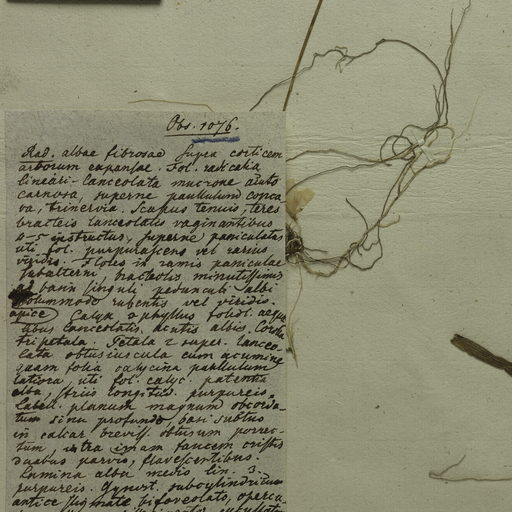 Obs. 1076.
Rad. albae fibrosae supra corticem
arborum expansae. Fol. radicalia
lineari-lanceolata mucrone acuto
carnosa, superne paullulum conca
va, trinervia. Scapus tenuis, teres
bracteis lanceolatis vaginantibus
4-5 instructus, superne paniculatus
uti fol. purpurascens vel rarius
viridis. Flores in ramis paniculae
subalterni, bracteolis minutissimis
ad basin singuli, pedunculi albi
solummodo rubentis vel viridio.
apice) Calyx 2phyllus foliol. aequa
libus lanceolatis acutis albis. Corolla
tripetala. Petala 2 super. lanceo
lata obtusiuscula cum acumine
quam folia calycina paullulum
latiora, uti fol. calyc. patentia
alba, striis longitud. purpureis.
Labell. planum magnum obcorda-
tum sinu profundo, basi subtus
in calcar breviss. obtusum porrec-
tum, intra imam faucem cristis
duabus parvis, flavescentibus.
Lamina alba medio lin. 3.
purpureis. Gynost. subcylindricum
antice stigmate bifoveolato, opercu